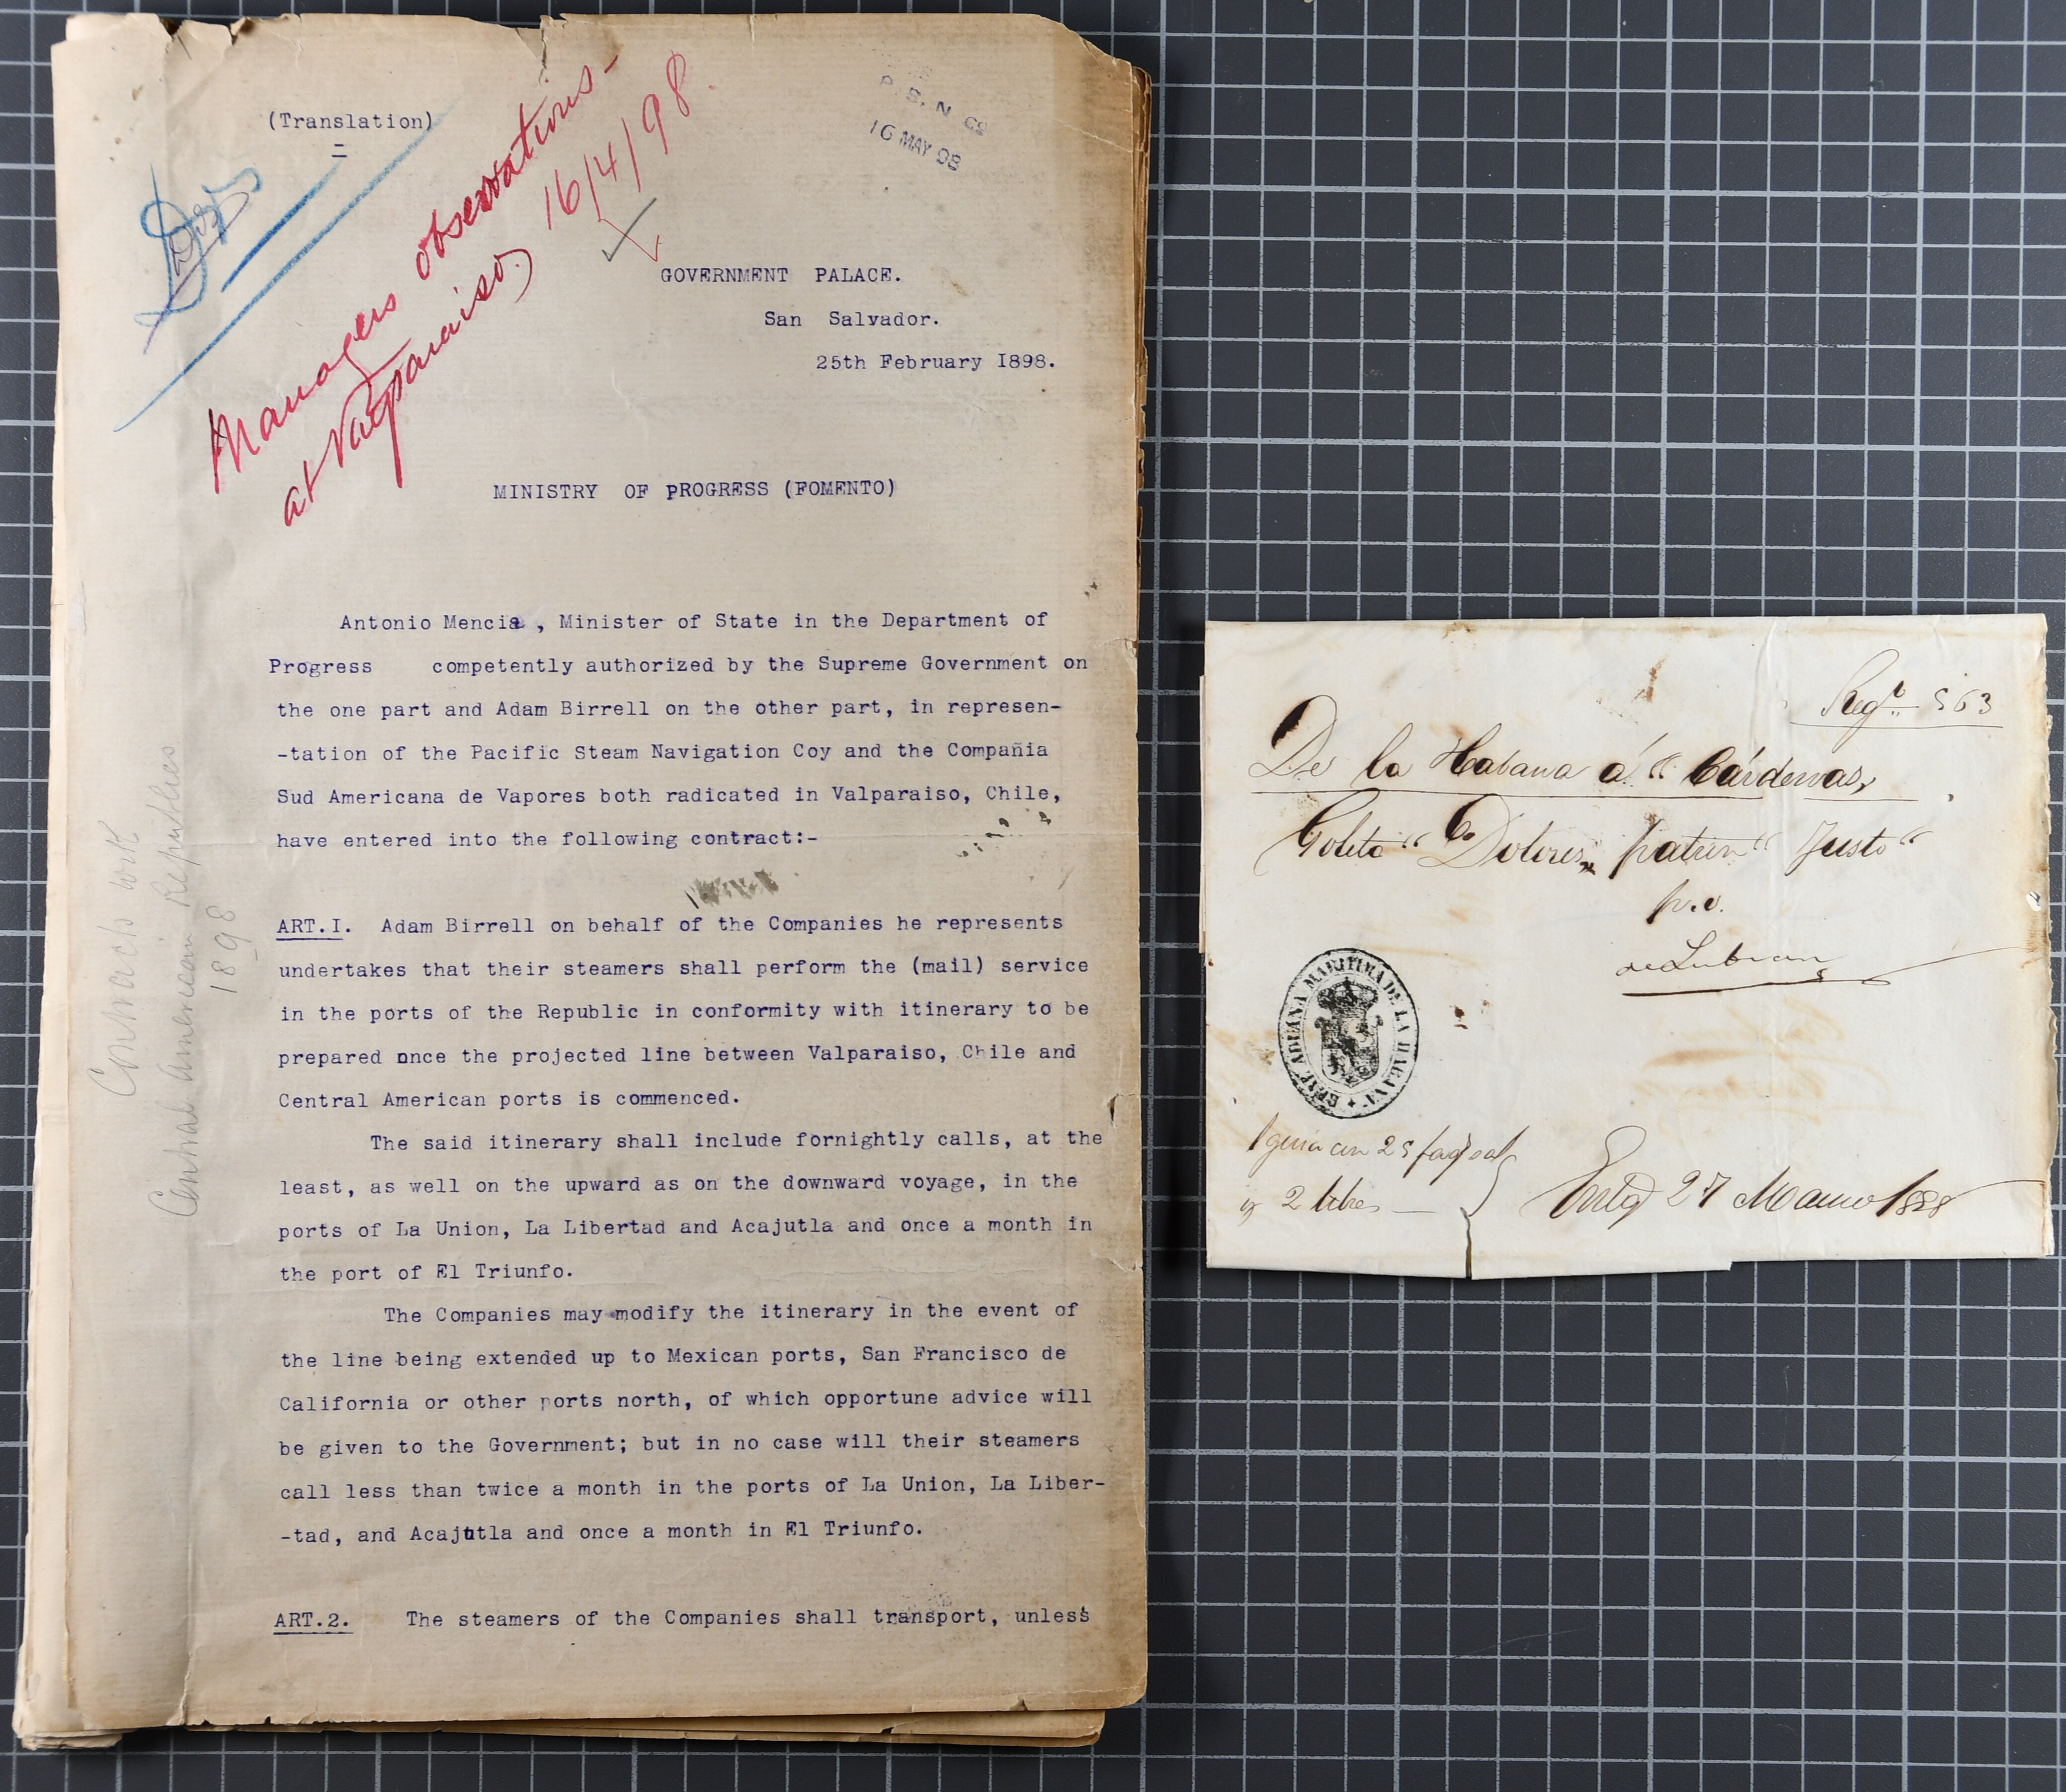 (Translation)
Managers observations -
at Valparaiso) 16/4/98.
P. S. N. Co
16 MAY 98
GOVERNMENT PALACE.
San Salvador.
25th February 1898.
MINISTRY OF PROGRESS (FOMENTO)
Antonio Mencia , Minister of State in the Department of
Progress competently authorized by the Supreme Government on
the one part and Adam Birrell on the other part, in represen-
-tation of the Pacific Steam Navigation Coy and the Compañia
Sud Americana de Vapores both radicated in Valparaiso, Chile,
have entered into the following contract:-
ART.I. Adam Birrell on behalf of the Companies he represents
undertakes that their steamers shall perform the (mail) service
in the ports of the Republic in conformity with itinerary to be
prepared once the projected line between Valparaiso, Chile and
Central American ports is commenced.
The said itinerary shall include fornightly calls, at the
least, as well on the upward as on the downward voyage, in the
ports of La Union, La Libertad and Acajutla and once a month in
the port of El Triunfo.
The Companies may modify the itinerary in the event of
the line being extended up to Mexican ports, San Francisco de
California or other ports north, of which opportune advice will
be given to the Government; but in no case will their steamers
call less than twice a month in the ports of La Union, La Liber-
-tad, and Acajutla and once a month in El Triunfo.
ART.2. The steamers of the Companies shall transport, unless
Contracts with
Central American Republics
1898
Regº 563
De la Habana á " Cárdenas,
Goleta " Dolores " patron " Justo "
p.o.
ADUANA MARITIMA DE LA HABANA
1 guia con 25
y 2 libres —
27 Marzo 1888